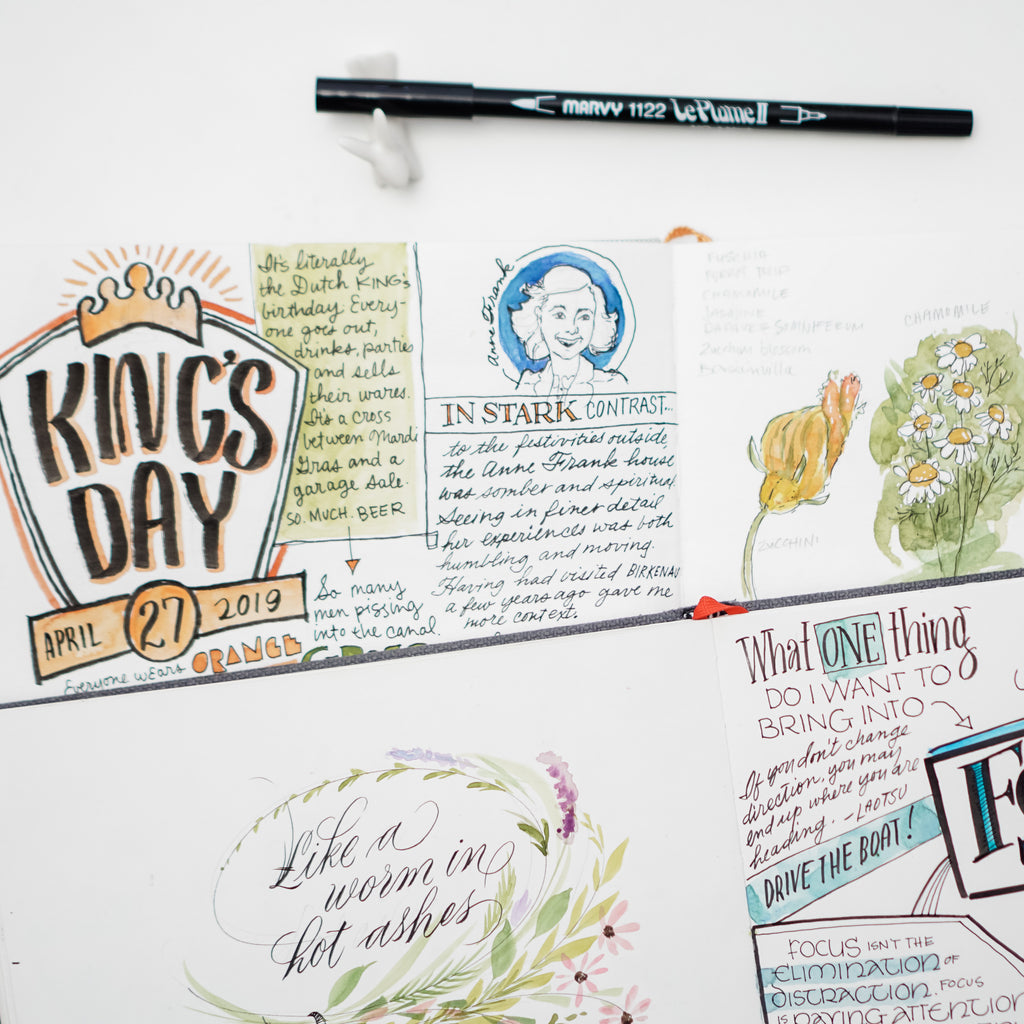 MARVY 1122 Le Plume II
KING'S
DAY
APRIL 27 2019
Everyone wears ORANGE
It's literally
the Dutch KING's
birthday. Every-
one goes out,
drinks, parties
and sells
their wares.
It's a cross
between Mardi
Gras and a
garage sale.
SO. MUCH. BEER
So many
men pissing
into the canal.
Anne Frank
IN STARK CONTRAST...
to the festivities outside,
the Anne Frank house
was somber and spiritual.
Seeing in finer detail
her experiences was both
humbling and moving.
Having had visited BIRKENAU
a few years ago gave me
more context.
FUSCHIA
CHAMOMILE
JASMINE
Zucchini blossom
CHAMOMILE
ZUCCHINI
Like a
worm in
hot ashes
What ONE thing
DO I WANT TO
BRING INTO
If you don't change
direction, you may
end up where you are
heading. - LAOTSU
DRIVE THE BOAT!
FOCUS ISN'T THE
ELIMINATION OF
DISTRACTION. FOCUS
IS PAYING ATTENTION